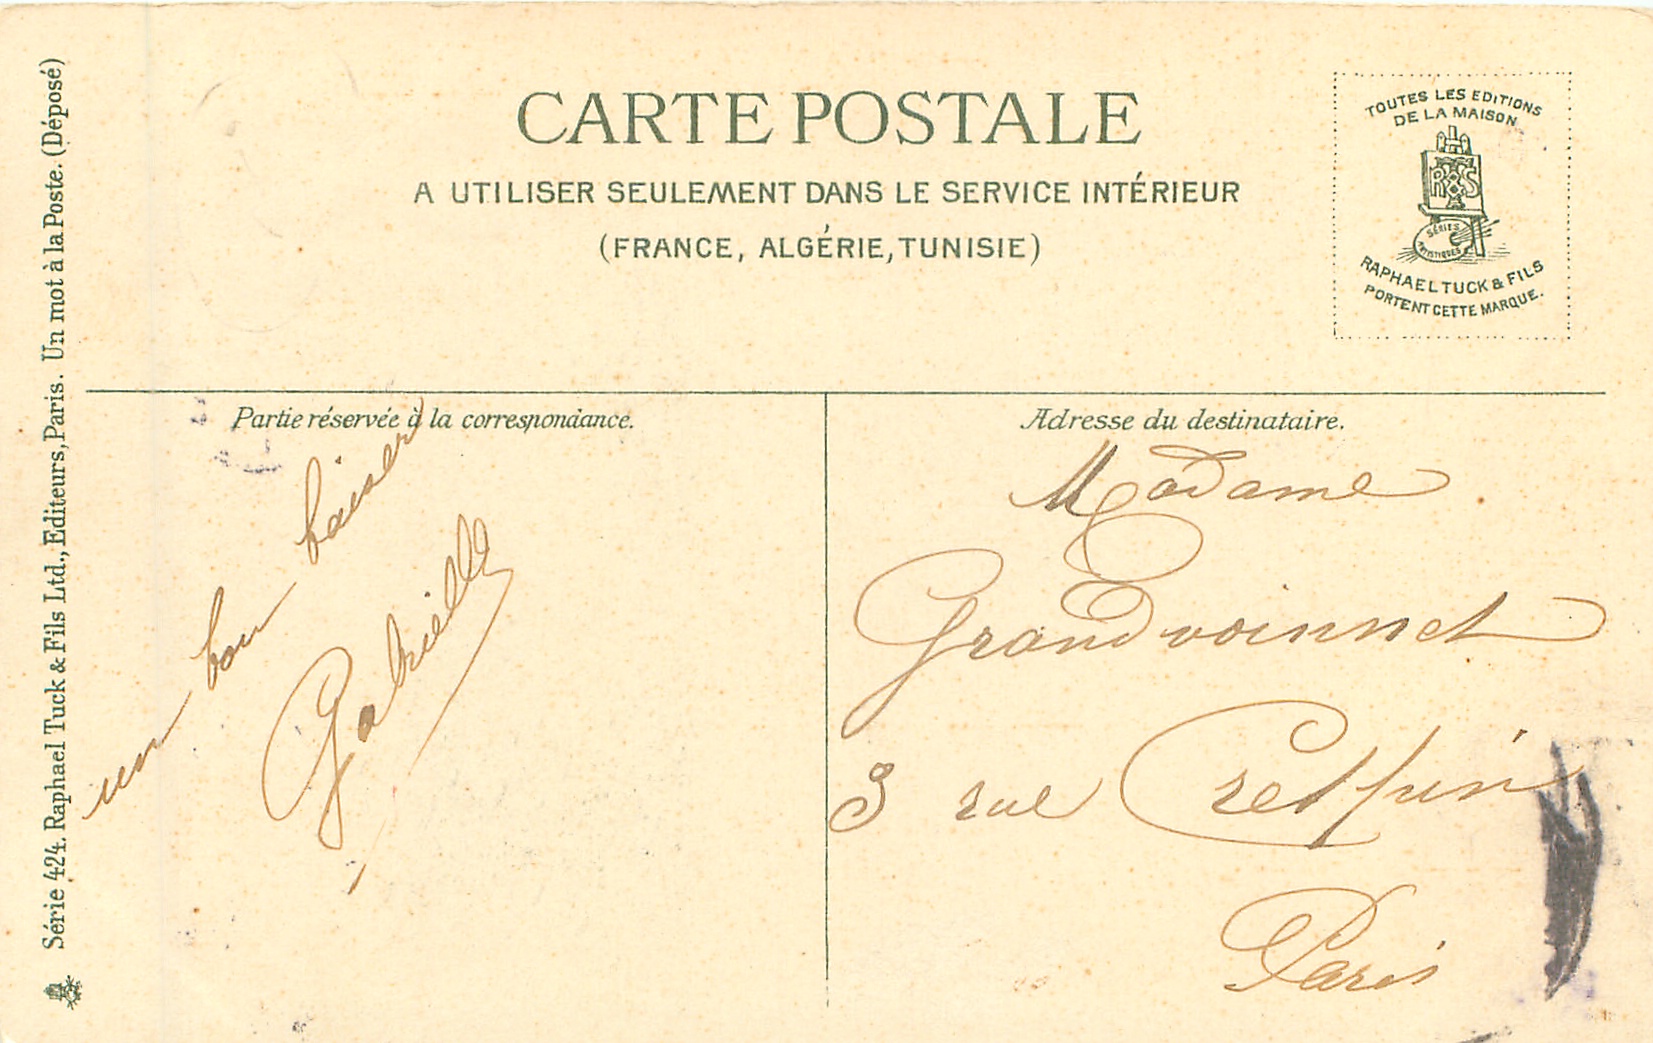 CARTE POSTALE
A UTILISER SEULEMENT DANS LE SERVICE INTÉRIEUR
(FRANCE, ALGÉRIE, TUNISIE)
TOUTES LES EDITIONS
DE LA MAISON
R T S
SÉRIES
ARTISTIQUES
RAPHAEL TUCK & FILS
PORTENT CETTE MARQUE.
Série 424. Raphael Tuck & Fils Ltd., Editeurs, Paris. Un mot à la Poste. (Déposé)
Partie réservée à la correspondance.
un bon baiser
Gabrielle
Adresse du destinataire.
Madame
Grandvoinnet
3 rue Crespin
Paris